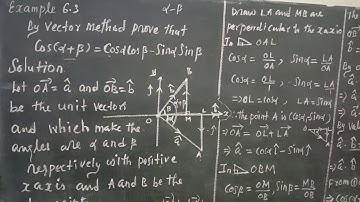 Example 6.3
α-β
By vector method prove that
Cos(α+β) = CosαCosβ-SinαSinβ
Solution
Let OA = â and OB = b̂
be the unit vectors
and which make the
angles are α and β
respectively with positive
x axis and A and B be the
y
B
O
L
x
A
Draw LA and MB are
perpendicular to the x axis
In ⊿ OAL
Cosα = OL/OA, Sinα = LA/OA
Cosα = OL/1, Sinα = LA/1
⇒ OL = Cosα, LA = Sinα
⇒ The point A is (Cosα, Sinα)
⇒ OA = OL + LA
⇒ â = Cosα î - Sinα ĵ
In ⊿ OBM
Cosβ = OM/OB Sinβ = MB/OB